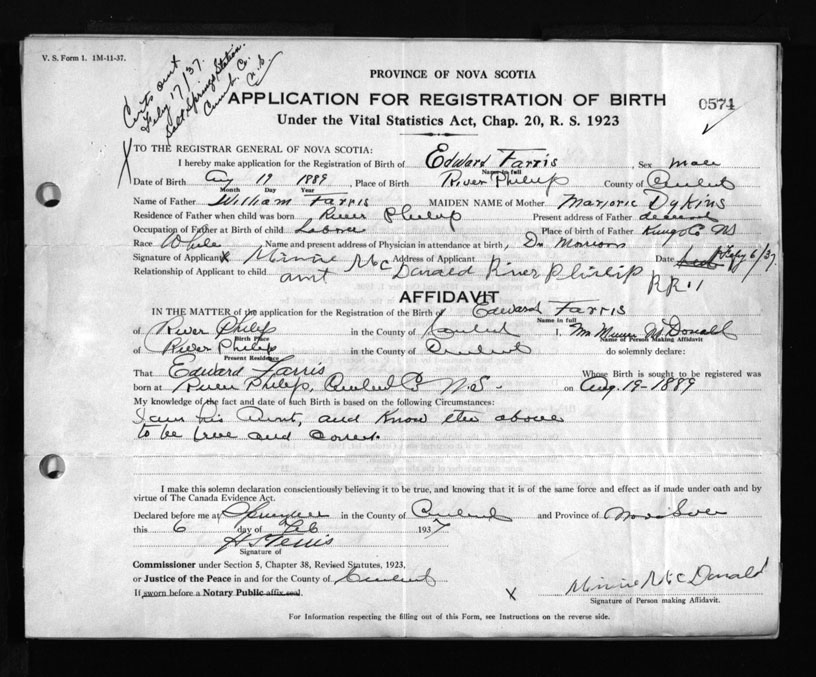 V. S. Form 1. 1M-11-37.
Feby 17/37.
Salt Springs Station
Cumb. Co.
N.S.
PROVINCE OF NOVA SCOTIA
APPLICATION FOR REGISTRATION OF BIRTH
0574
Under the Vital Statistics Act, Chap. 20, R. S. 1923
TO THE REGISTRAR GENERAL OF NOVA SCOTIA:
I hereby make application for the Registration of Birth of Edward Farris, Sex male
Name in full
Date of Birth Aug 19 1889, Place of Birth River Philip County of Cumberland
Month Day Year
Name of Father William Farris MAIDEN NAME of Mother Marjorie Dykins
Residence of Father when child was born River Philip Present address of Father deceased
Occupation of Father at Birth of child Laborer Place of birth of Father Kings Co NS
Race White Name and present address of Physician in attendance at birth, Dr
Signature of Applicant X Minnie McDonald Address of Applicant River Philip Date Feby 6/37.
Relationship of Applicant to child aunt RR.1
AFFIDAVIT
IN THE MATTER of the application for the Registration of the Birth of Edward Farris
Name in full
of River Philip in the County of Cumberland I, Mrs Minnie McDonald
Birth Place Name of Person Making Affidavit
of River Philip in the County of Cumberland do solemnly declare:
Present Residence
That Edward Farris Whose Birth is sought to be registered was
born at River Philip, Cumberland Co N.S. on Aug. 19-1889
My knowledge of the fact and date of such Birth is based on the following Circumstances:
I am his Aunt, and Know the above
to be true and correct.
I make this solemn declaration conscientiously believing it to be true, and knowing that it is of the same force and effect as if made under oath and by
virtue of The Canada Evidence Act.
Declared before me at in the County of Cumberland and Province of Nova Scotia
this 6 day of Feb 1937
Signature of
Commissioner under Section 5, Chapter 38, Revised Statutes, 1923,
or Justice of the Peace in and for the County of Cumberland
If sworn before a Notary Public affix seal. X Minnie McDonald
Signature of Person making Affidavit.
For Information respecting the filling out of this Form, see Instructions on the reverse side.